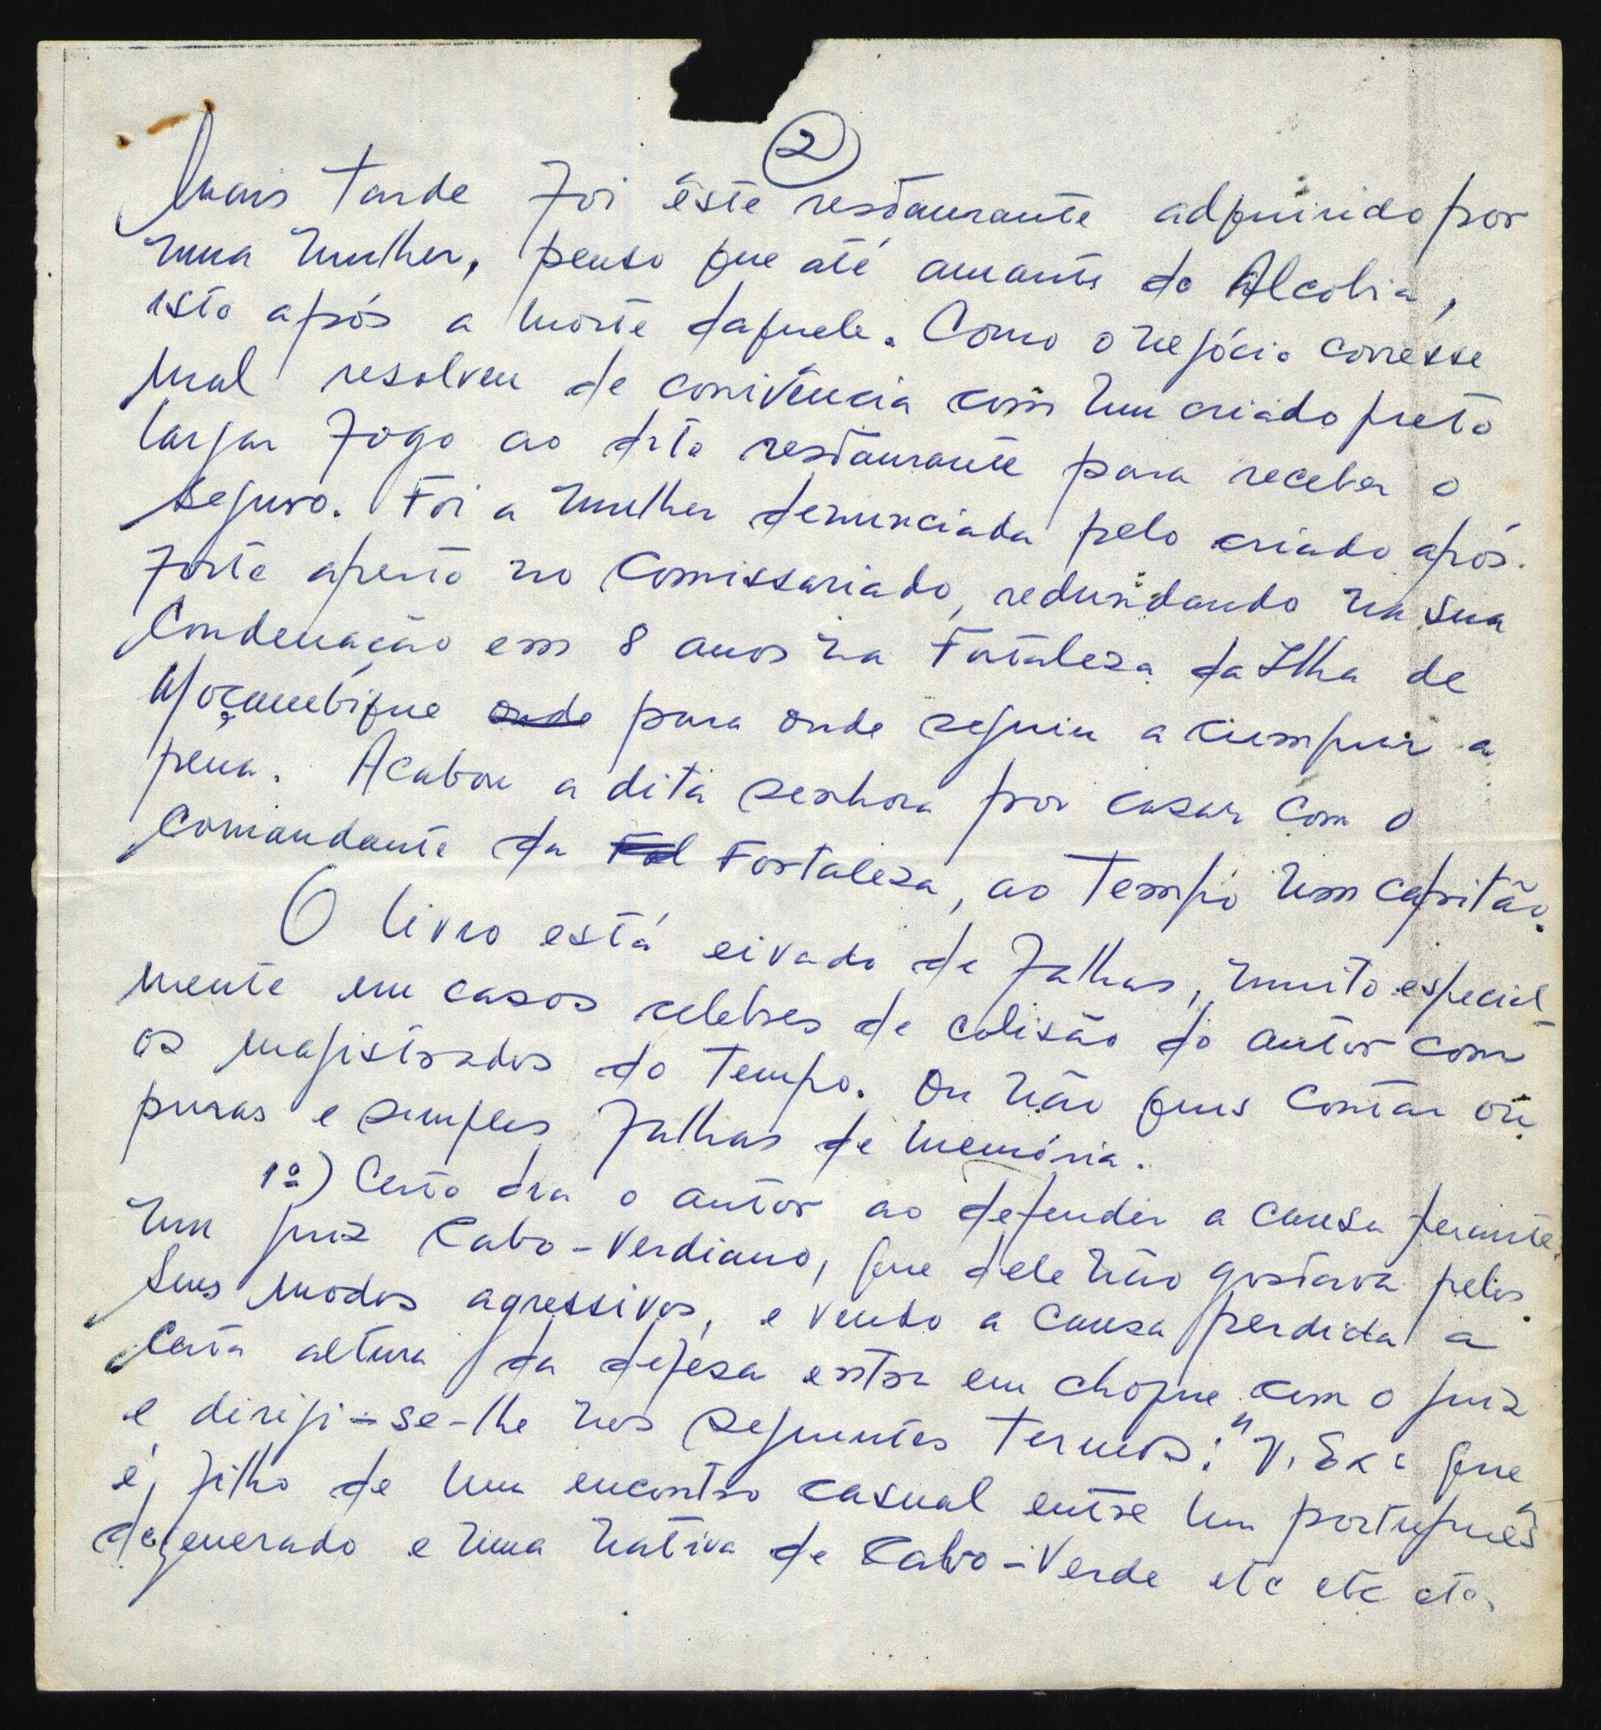 2
Mais tarde foi êste restaurante adquirido por
uma mulher, penso que até amante do Alcobia,
isto após a morte daquele. Como o negócio corresse
mal resolveu de conivência com um criado preto
largar fogo ao dito restaurante para receber o
seguro. Foi a mulher denunciada pelo criado após
forte aperto no Comissariado, redundando na sua
Condenação em 8 anos na Fortaleza da Ilha de
Moçambique onde para onde seguiu a cumprir a
pena. Acabou a dita senhora por casar com o
Comandante da Fol Fortaleza, ao tempo um capitão.
O livro está eivado de falhas, muito especial-
mente em casos celebres de colisão do autor com
os magistrados do tempo. Ou não quis contar ou
puras e simples falhas de memória.
1º) Certo dia o autor ao defender a causa perante
um juiz Cabo-Verdiano, que dele não gostava pelos
seus modos agressivos, e vendo a causa perdida a
certa altura da defesa entra em choque com o juiz
e dirigi-se-lhe nos seguintes termos: "V. Exª que
é, filho de um encontro casual entre um português
degenerado e uma nativa de Cabo-Verde etc etc etc.